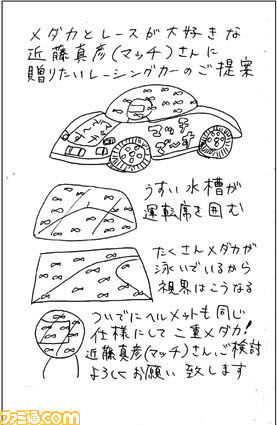 メダカとレースが大好きな
近藤真彦(マッチ)さんに
贈りたいレーシングカーのご提案
マッチ
マッチ
うすい水槽が
運転席を囲む
たくさんメダカが
泳いでいるから
視界はこうなる
ついでにヘルメットも同じ
仕様にして二重メダカ!
近藤真彦(マッチ)さん、ご検討
よろしくお願い致します
ファミ通.com